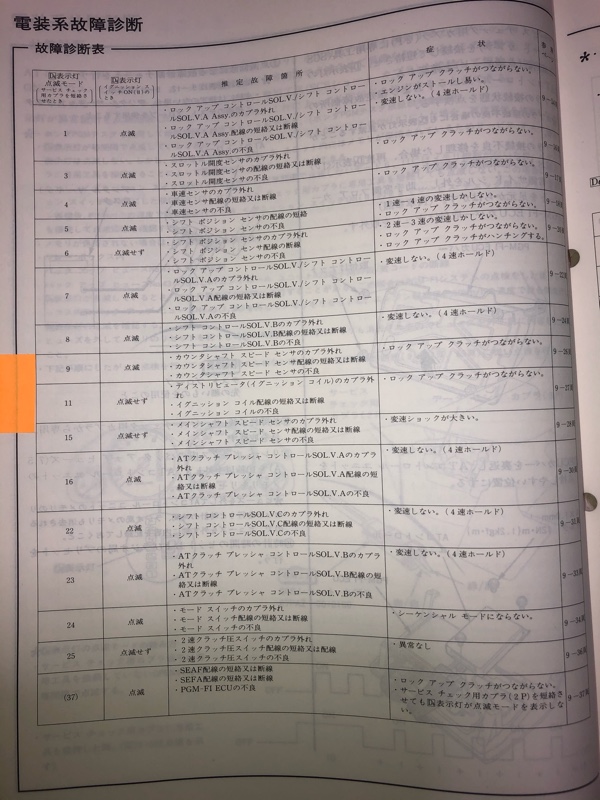 電装系故障診断
故障診断表
D4表示灯
点滅モード
(サービス チェック
用カプラを短絡さ
せたとき)
D4表示灯
(イグニッション ス
イッチON(Ⅱ)の
とき)
推定故障箇所
症状
参照
1
点滅
・ロック アップ コントロールSOL.V./シフト コントロー
ルSOL.V.A Assy.のカプラ外れ
・ロック アップ コントロールSOL.V./シフト コントロー
ルSOL.V.A Assy.配線の短絡又は断線
・ロック アップ コントロールSOL.V./シフト コントロー
ルSOL.V.A Assy.の不良
・ロック アップ クラッチがつながらない。
・エンジンがストールし易い。
・変速しない。(4速ホールド)
3
点滅
・スロットル開度センサのカプラ外れ
・スロットル開度センサの短絡又は断線
・スロットル開度センサの不良
・ロック アップ クラッチがつながらない。
4
点滅
・車速センサのカプラ外れ
・車速センサ配線の短絡又は断線
・車速センサの不良
・ロック アップ クラッチがつながらない。
5
点滅
・シフト ポジション センサの配線の短絡
・シフト ポジション センサの不良
・1速―4速の変速しかしない。
・ロック アップ クラッチがつながらない。
6
点滅せず
・シフト ポジション センサのカプラ外れ
・シフト ポジション センサ配線の断線
・シフト ポジション センサの不良
・2速―3速の変速しかしない。
・ロック アップ クラッチがつながらない。
・ロック アップ クラッチがハンチングする。
7
点滅
・ロック アップ コントロールSOL.V./シフト コントロー
ルSOL.V.Aのカプラ外れ
・ロック アップ コントロールSOL.V./シフト コントロー
ルSOL.V.A配線の短絡又は断線
・ロック アップ コントロールSOL.V./シフト コントロー
ルSOL.V.Aの不良
・変速しない。(4速ホールド)
8
点滅
・シフト コントロールSOL.V.Bのカプラ外れ
・シフト コントロールSOL.V.B配線の短絡又は断線
・シフト コントロールSOL.V.Bの不良
・変速しない。(4速ホールド)
9
点滅
・カウンタシャフト スピード センサのカプラ外れ
・カウンタシャフト スピード センサ配線の短絡又は断線
・カウンタシャフト スピード センサの不良
・ロック アップ クラッチがつながらない。
11
点滅せず
・ディストリビュータ(イグニッション コイル)のカプラ外
れ
・イグニッション コイル配線の短絡又は断線
・イグニッション コイルの不良
・ロック アップ クラッチがつながらない。
15
点滅せず
・メインシャフト スピード センサのカプラ外れ
・メインシャフト スピード センサ配線の短絡又は断線
・メインシャフト スピード センサの不良
・変速ショックが大きい。
16
点滅
・ATクラッチ プレッシャ コントロールSOL.V.Aのカプラ
外れ
・ATクラッチ プレッシャ コントロールSOL.V.A配線の短
絡又は断線
・ATクラッチ プレッシャ コントロールSOL.V.Aの不良
・変速しない。(4速ホールド)
22
点滅
・シフト コントロールSOL.V.Cのカプラ外れ
・シフト コントロールSOL.V.C配線の短絡又は断線
・シフト コントロールSOL.V.Cの不良
・変速しない。(4速ホールド)
23
点滅
・ATクラッチ プレッシャ コントロールSOL.V.Bのカプラ
外れ
・ATクラッチ プレッシャ コントロールSOL.V.B配線の短
絡又は断線
・ATクラッチ プレッシャ コントロールSOL.V.Bの不良
・変速しない。(4速ホールド)
24
点滅
・モード スイッチのカプラ外れ
・モード スイッチ配線の短絡又は断線
・モード スイッチの不良
・シーケンシャル モードにならない。
25
点滅せず
・2速クラッチ圧スイッチのカプラ外れ
・2速クラッチ圧スイッチ配線の短絡又は配線
・2速クラッチ圧スイッチの不良
・異常なし
(37)
点滅
・SEAF配線の短絡又は断線
・SEFA配線の短絡又は断線
・PGM-FI ECUの不良
・ロック アップ クラッチがつながらない。
・サービス チェック用カプラ(2P)を短絡さ
せてもD4表示灯が点滅モードを表示しな
い。